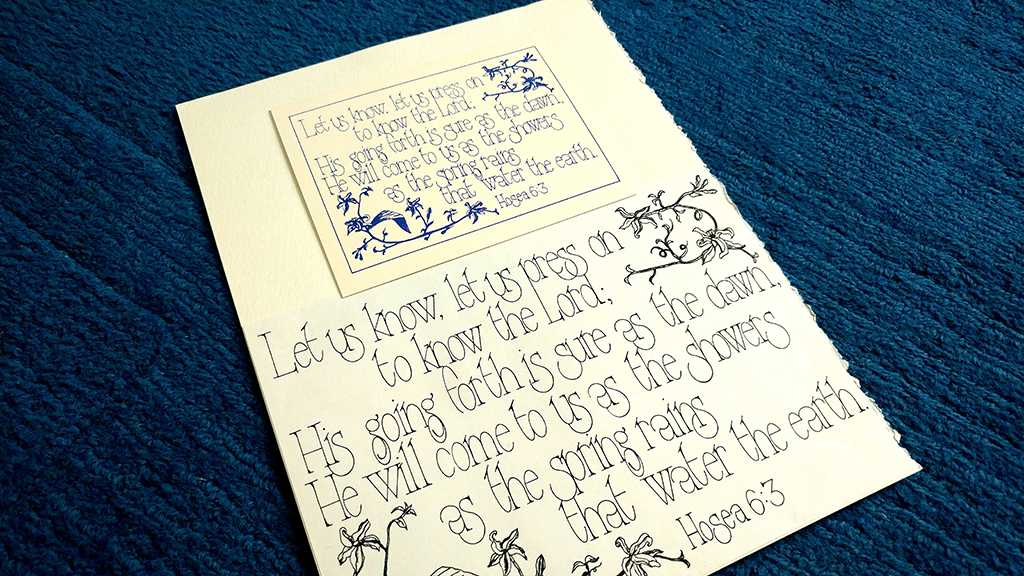 Let us know, let us press on
to know the Lord;
His going forth is sure as the dawn,
He will come to us as the showers
as the spring rains
that water the earth.
Hosea 6:3
Let us know, let us press on
to know the Lord;
His going forth is sure as the dawn,
He will come to us as the showers
as the spring rains
that water the earth.
Hosea 6:3